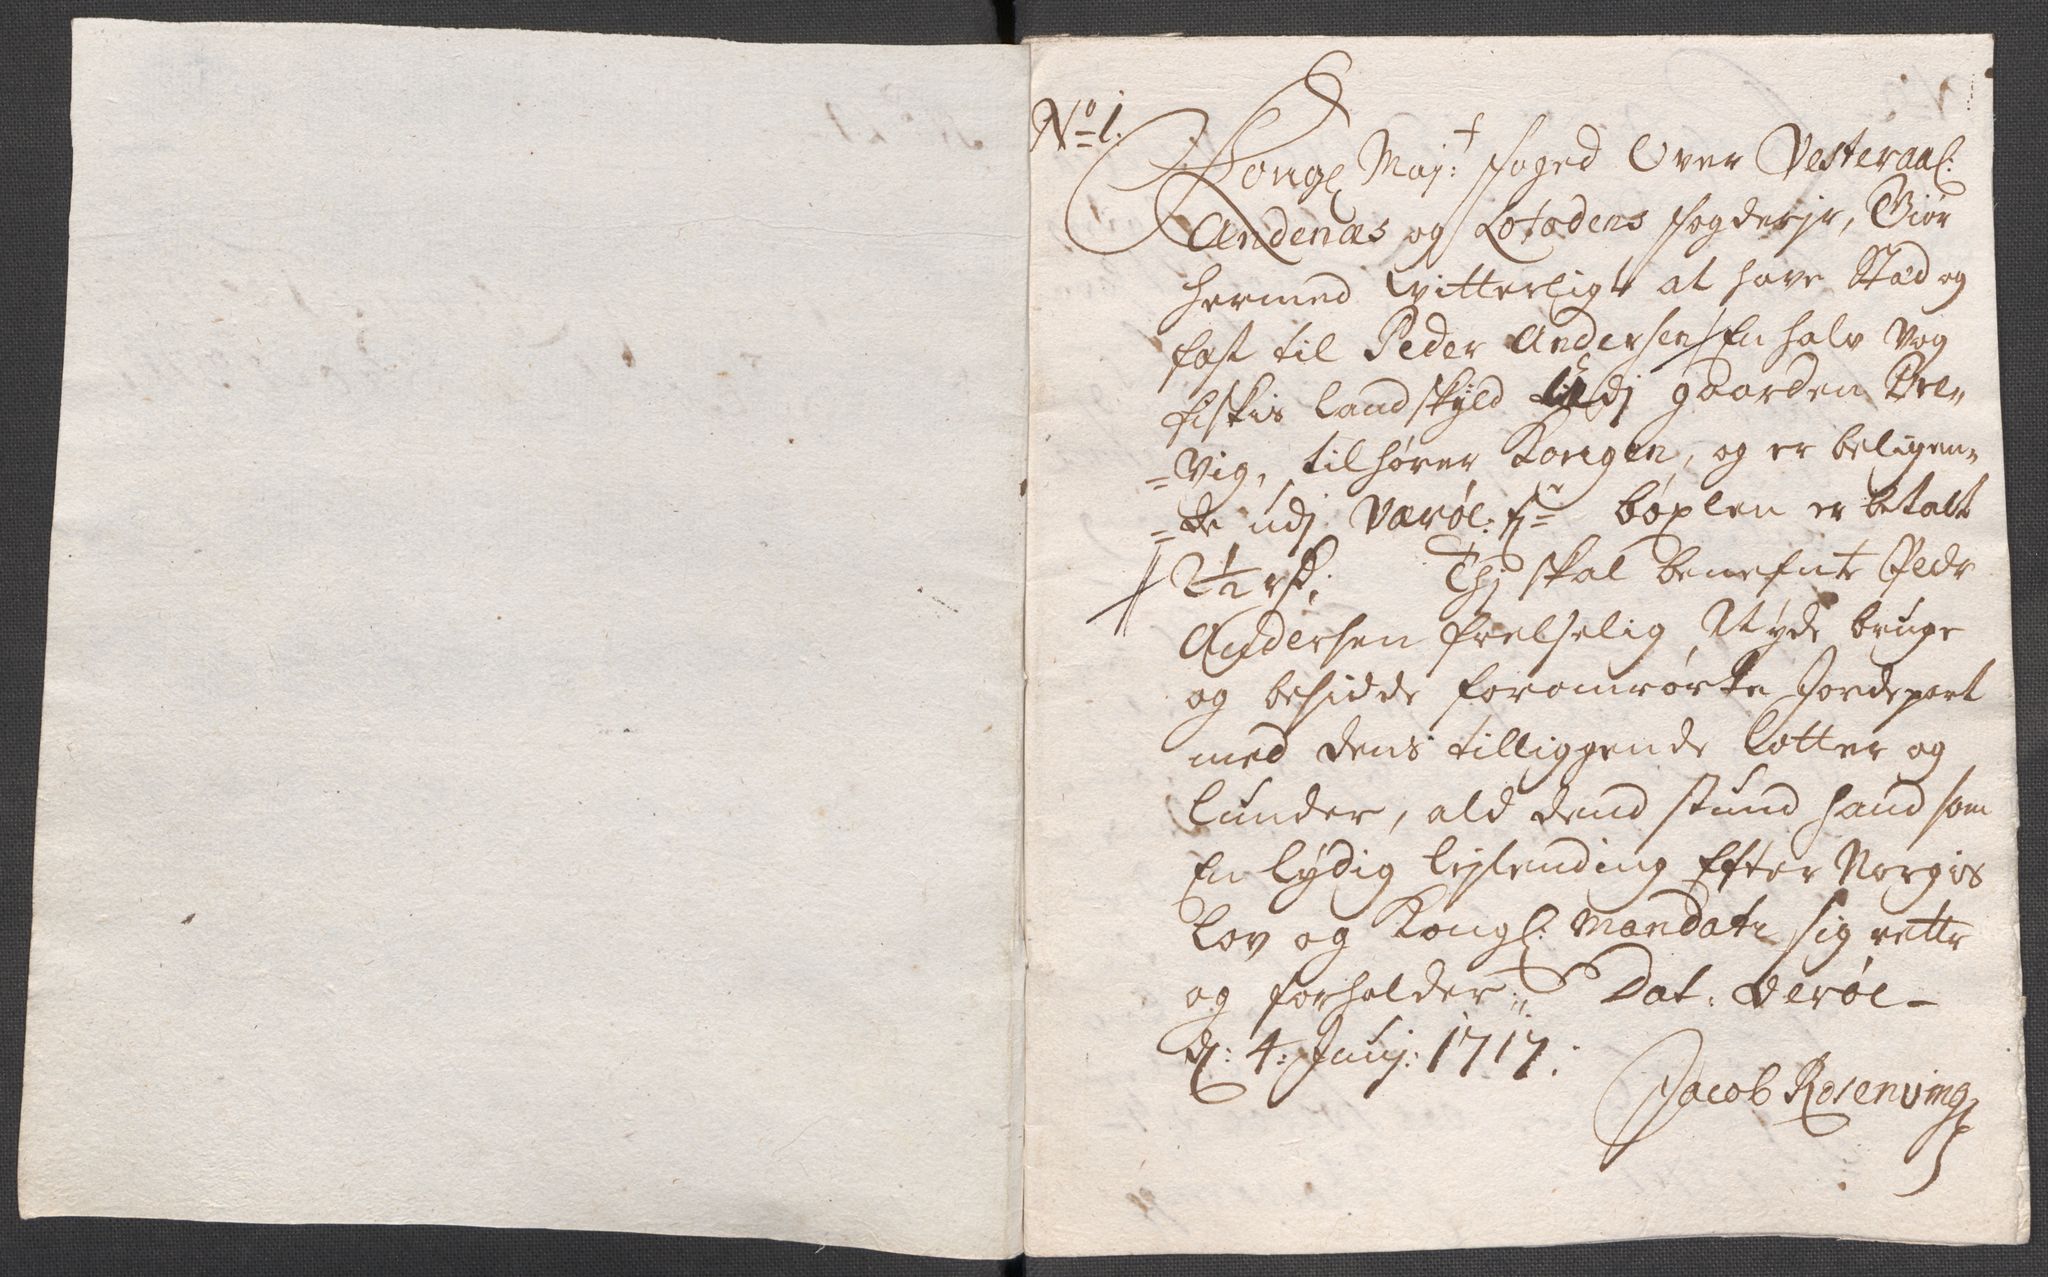 No 1.
Kongl Mayt: foged Over Vesteraal:
Andenæs og Lofodens fogderjr, Giør
hermed Witterligt at have Stæd og
fæst til Peder Andersen En halv Vog
fiskis landskyld udj gaarden Bre„
„vig, tilhører Kongen, og er beligen„
„de udj Værøe: fr: böxlen er betalt
2½ rd: Thj skal benefnte Peder
Andersen frelselig Nyde bruge
og besidde foromrørte Jordepart
med dens tilliggende lotter og
lunder, ald dend stund hand som
En lydig lejlending Efter Norgis
Lov og Kongl: Mandater sig retter
og forholder; Dat. Verøe –
d: 4: Junj: 1717.
Jacob Rosenving